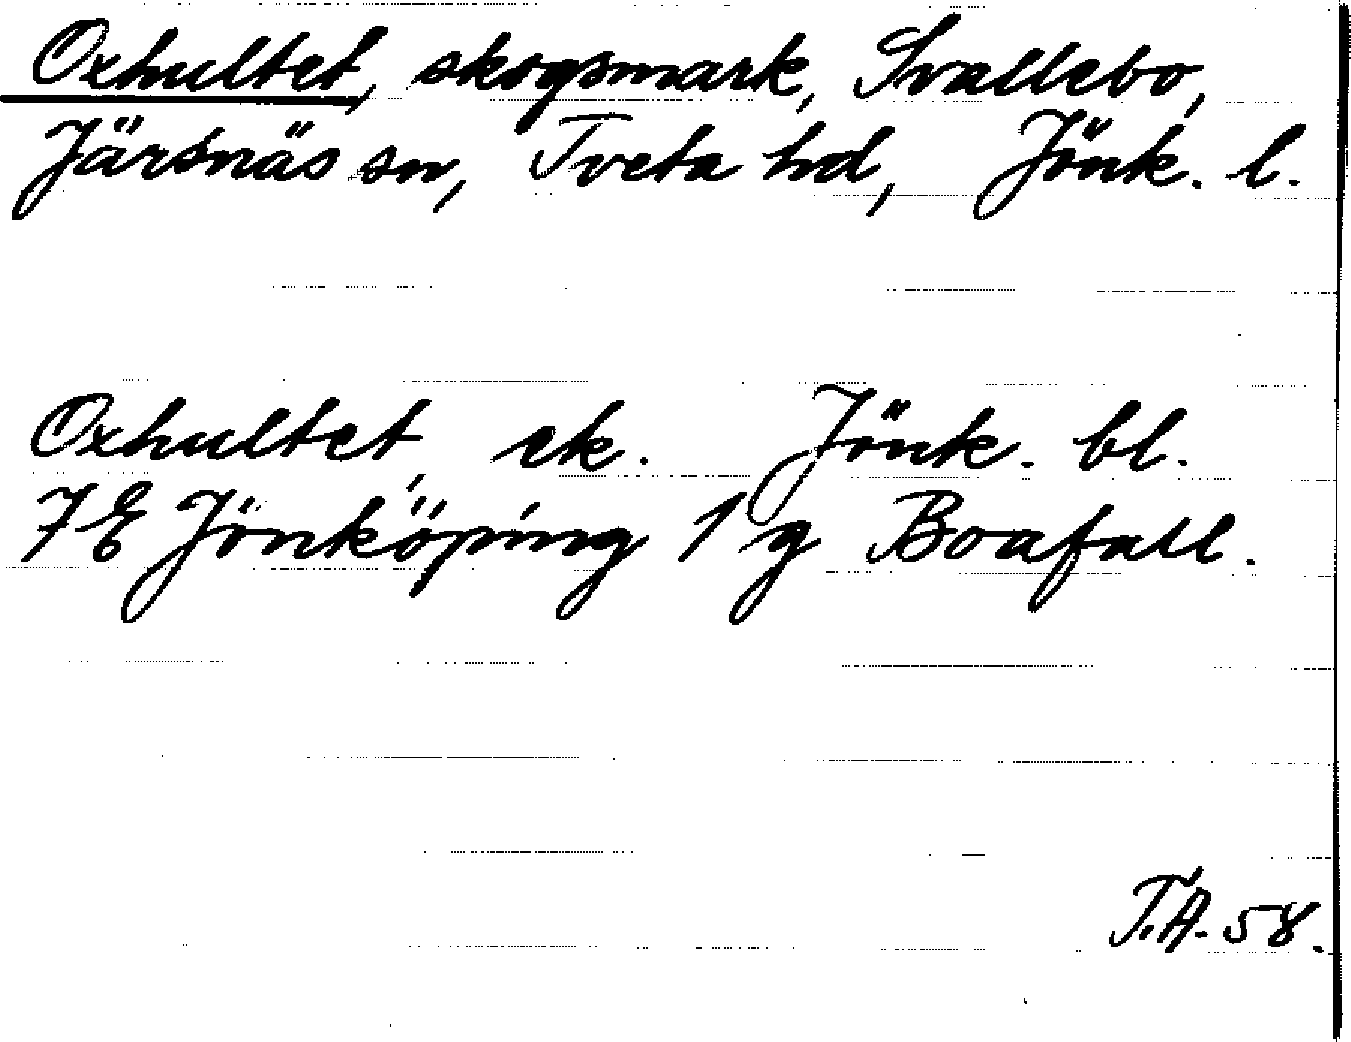 Oxhultet, skogsmark, Svallebo,
Järsnäs sn, Tveta hd, Jönk. l.
Oxhultet, ek. Jönk. bl.
7E Jönköping 1 g Boafall.
T.A. 58.